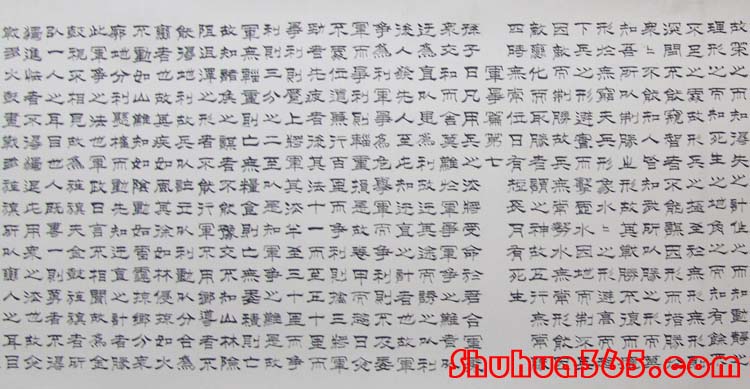 故策之而知得失之計候之而知動靜之
理形之而知死生之地角之而知有餘
不足之處故形兵之極至於無形無形則
深間不能窺智者不能謀因形而措勝於
眾眾不能知人皆知我所以勝之形而莫
知吾所以制勝之形故其戰勝不復而應
形於無窮夫兵形象水水之形避高而趨
下兵之形避實而擊虛水因地而制流兵
因敵而制勝故兵無常勢水無常形能因
敵變化而取勝者謂之神故五行無常勝
四時無常位日有短長月有死生
軍爭篇第七
孫子曰凡用兵之法將受命於君合軍聚
眾交和而舍莫難於軍爭軍爭之難者以
迂為直以患為利故迂其途而誘之以利
後人發先人至此知迂直之計者也故軍
爭為利軍爭為危舉軍而爭利則不及委
軍而爭利則輜重捐是故卷甲而趨日夜
不處倍道兼行百里而爭利則擒三將軍
勁者先疲者後其法十一而至五十里而
爭利則蹶上將軍其法半至三十里而爭
利則三分之二至以是知軍爭之難是故
軍無輜重則亡無糧食則亡無委積則亡
故不知諸侯之謀者不能豫交不知山林險
阻沮澤之形者不能行軍不用鄉導者不
能得地利故兵以詐立以利動以分合為
變者也故其疾如風其徐如林侵掠如火
不動如山難知如陰動如雷震掠鄉分眾
廓地分利懸權而動先知迂直之計者勝
此軍爭之法也軍政曰言不相聞故為金
鼓視不相見故為旌旗夫金鼓旌旗者所
以一人之耳目也人既專一則勇者不得
獨進怯者不得獨退此用眾之法也故夜
戰多火鼓晝戰多旌旗所以變人之耳目
Shuhua365.com